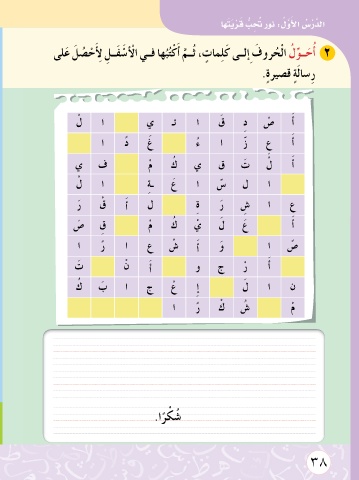 الدَّرْسُ الأَوَّلُ: نور تُحبُّ قَرْيَتَها
٢ أُحَـوِّلُ الْحُروفَ إِلـى كَلِماتٍ، ثُـمَّ أَكْتُبُها فـي الْأَسْفَـلِ لِأَحْصُلَ عَلى
رِسالَةٍ قصيرةٍ.
أَ صْ دِ قَ ا ئـِ ي ا لْ
أَ عِ زّ ا ءُ غَ دً ا
أَ لْ تَ قـ ي كُ مْ فـ ي
ا ل سّ ا عَ ةِ ا لْ
ع ا شِ رَ ةِ لِ أَ قْ رَ
أَ عَ لَ يْ كُ مْ قِ صَ
صً ا وَ أَ شْ ع ا رً ا
أَ رْ ج و أَ نْ تَ
ن ا لَ إِ عْ ج ا بَ كُ
مْ شُ كْ رً ا
شُكْرًا.
٣٨